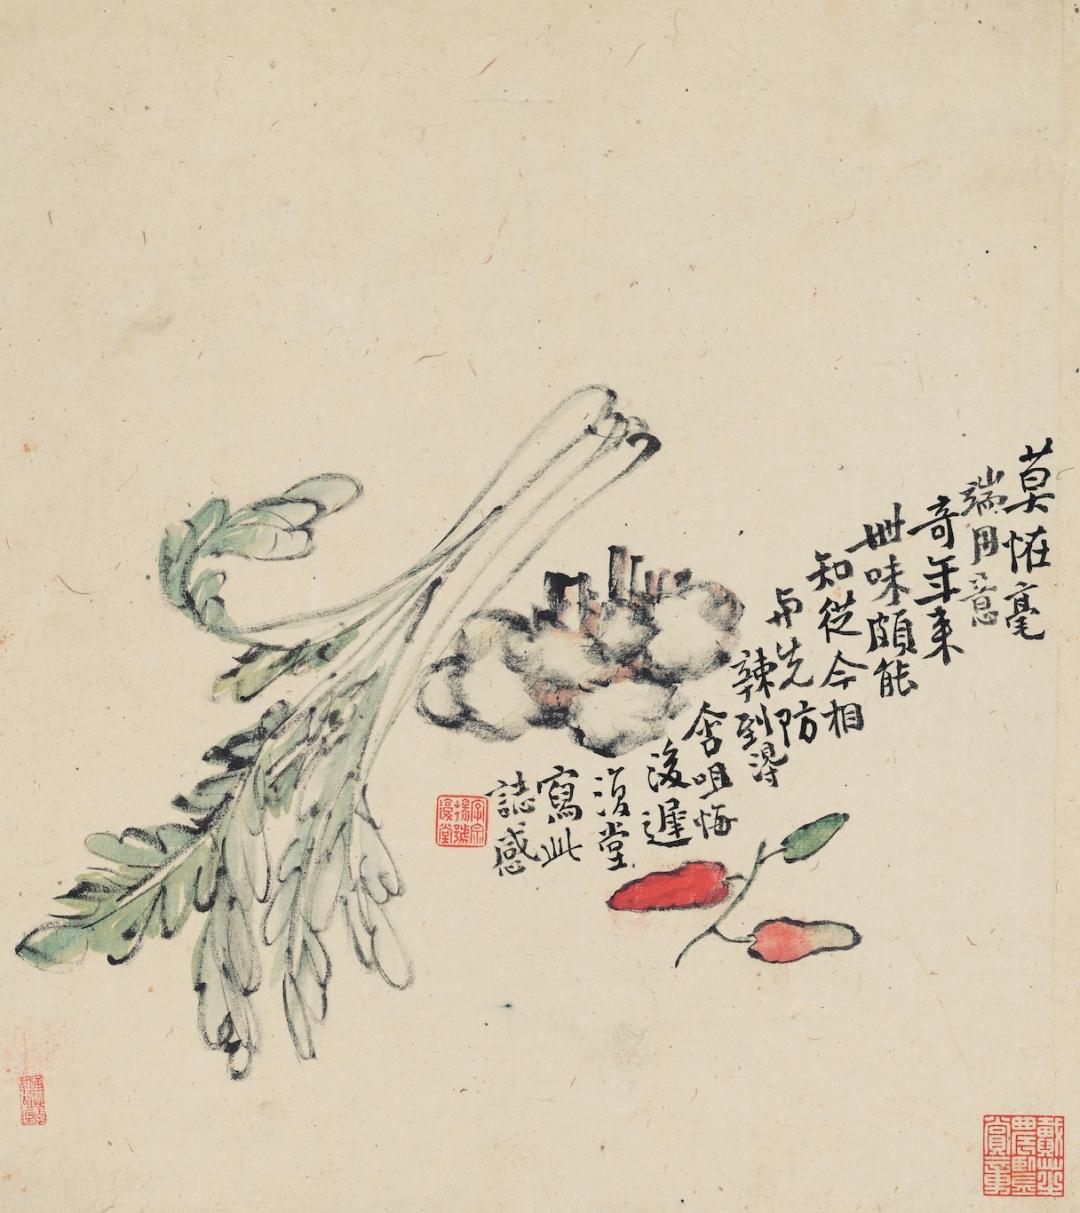 莫怪毫
端用意
奇年来
世味頗能
知從今相
與先防
辣到得
含咀悔
後遲
復堂
寫此
誌感